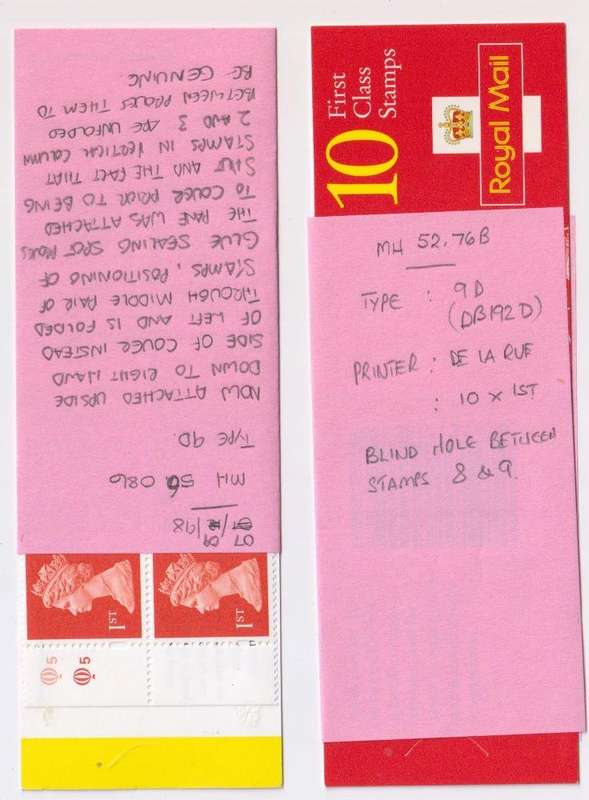 07/09/98
MH 56086
TYPE 9D.
NOW ATTACHED UPSIDE
DOWN TO RIGHT HAND
SIDE OF COVER INSTEAD
OF LEFT AND IS FOLDED
THROUGH MIDDLE PAIR OF
STAMPS, POSITIONING OF
GLUE SEALING SPOT PROVES
THE PANE WAS ATTACHED
TO COVER PRIOR TO BEING
SLIT AND THE FACT THAT
STAMPS IN VERTICAL COLUMN
2 AND 3 ARE UNFOLDED
BETWEEN PROVES THEM TO
BE GENUINE.
1ST
1ST
5
5
10
First
Class
Stamps
Royal Mail
MH 52.76B
TYPE : 9D
(DB192D)
PRINTER : DE LA RUE
: 10 x 1ST
BLIND HOLE BETWEEN
STAMPS 8 & 9.